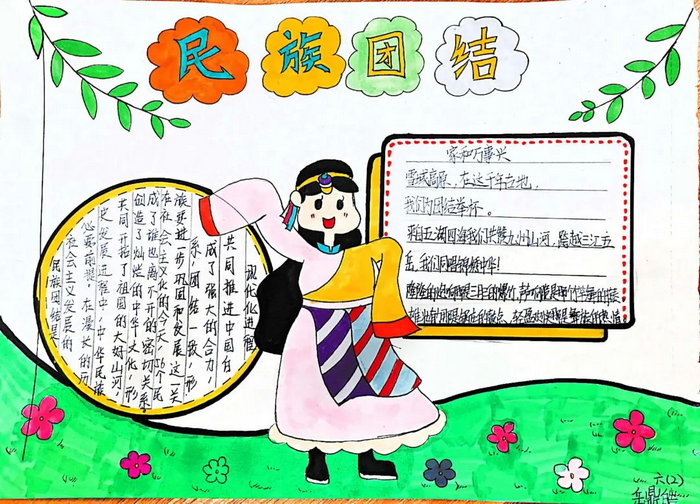 民族团结
家和万事兴
雪域高原，在这千年古地，
我们为团结举杯。
来自五湖四海我们共赞九州山河，跨越三江五
岳，我们同唱锦绣中华！
民族团结是
社会主义发展的
必要前提。在漫长的历
史发展进程中，中华民族
共同开拓了祖国的大好山河，
创造了灿烂的中华文化，形
成了谁也离不开的密切关系
在社会主义的今天，56个民
族要进一步巩固和发展这一关
系，团结一致，形
成了强大的合力，
共同推进中国的
现代化进程
六(2)